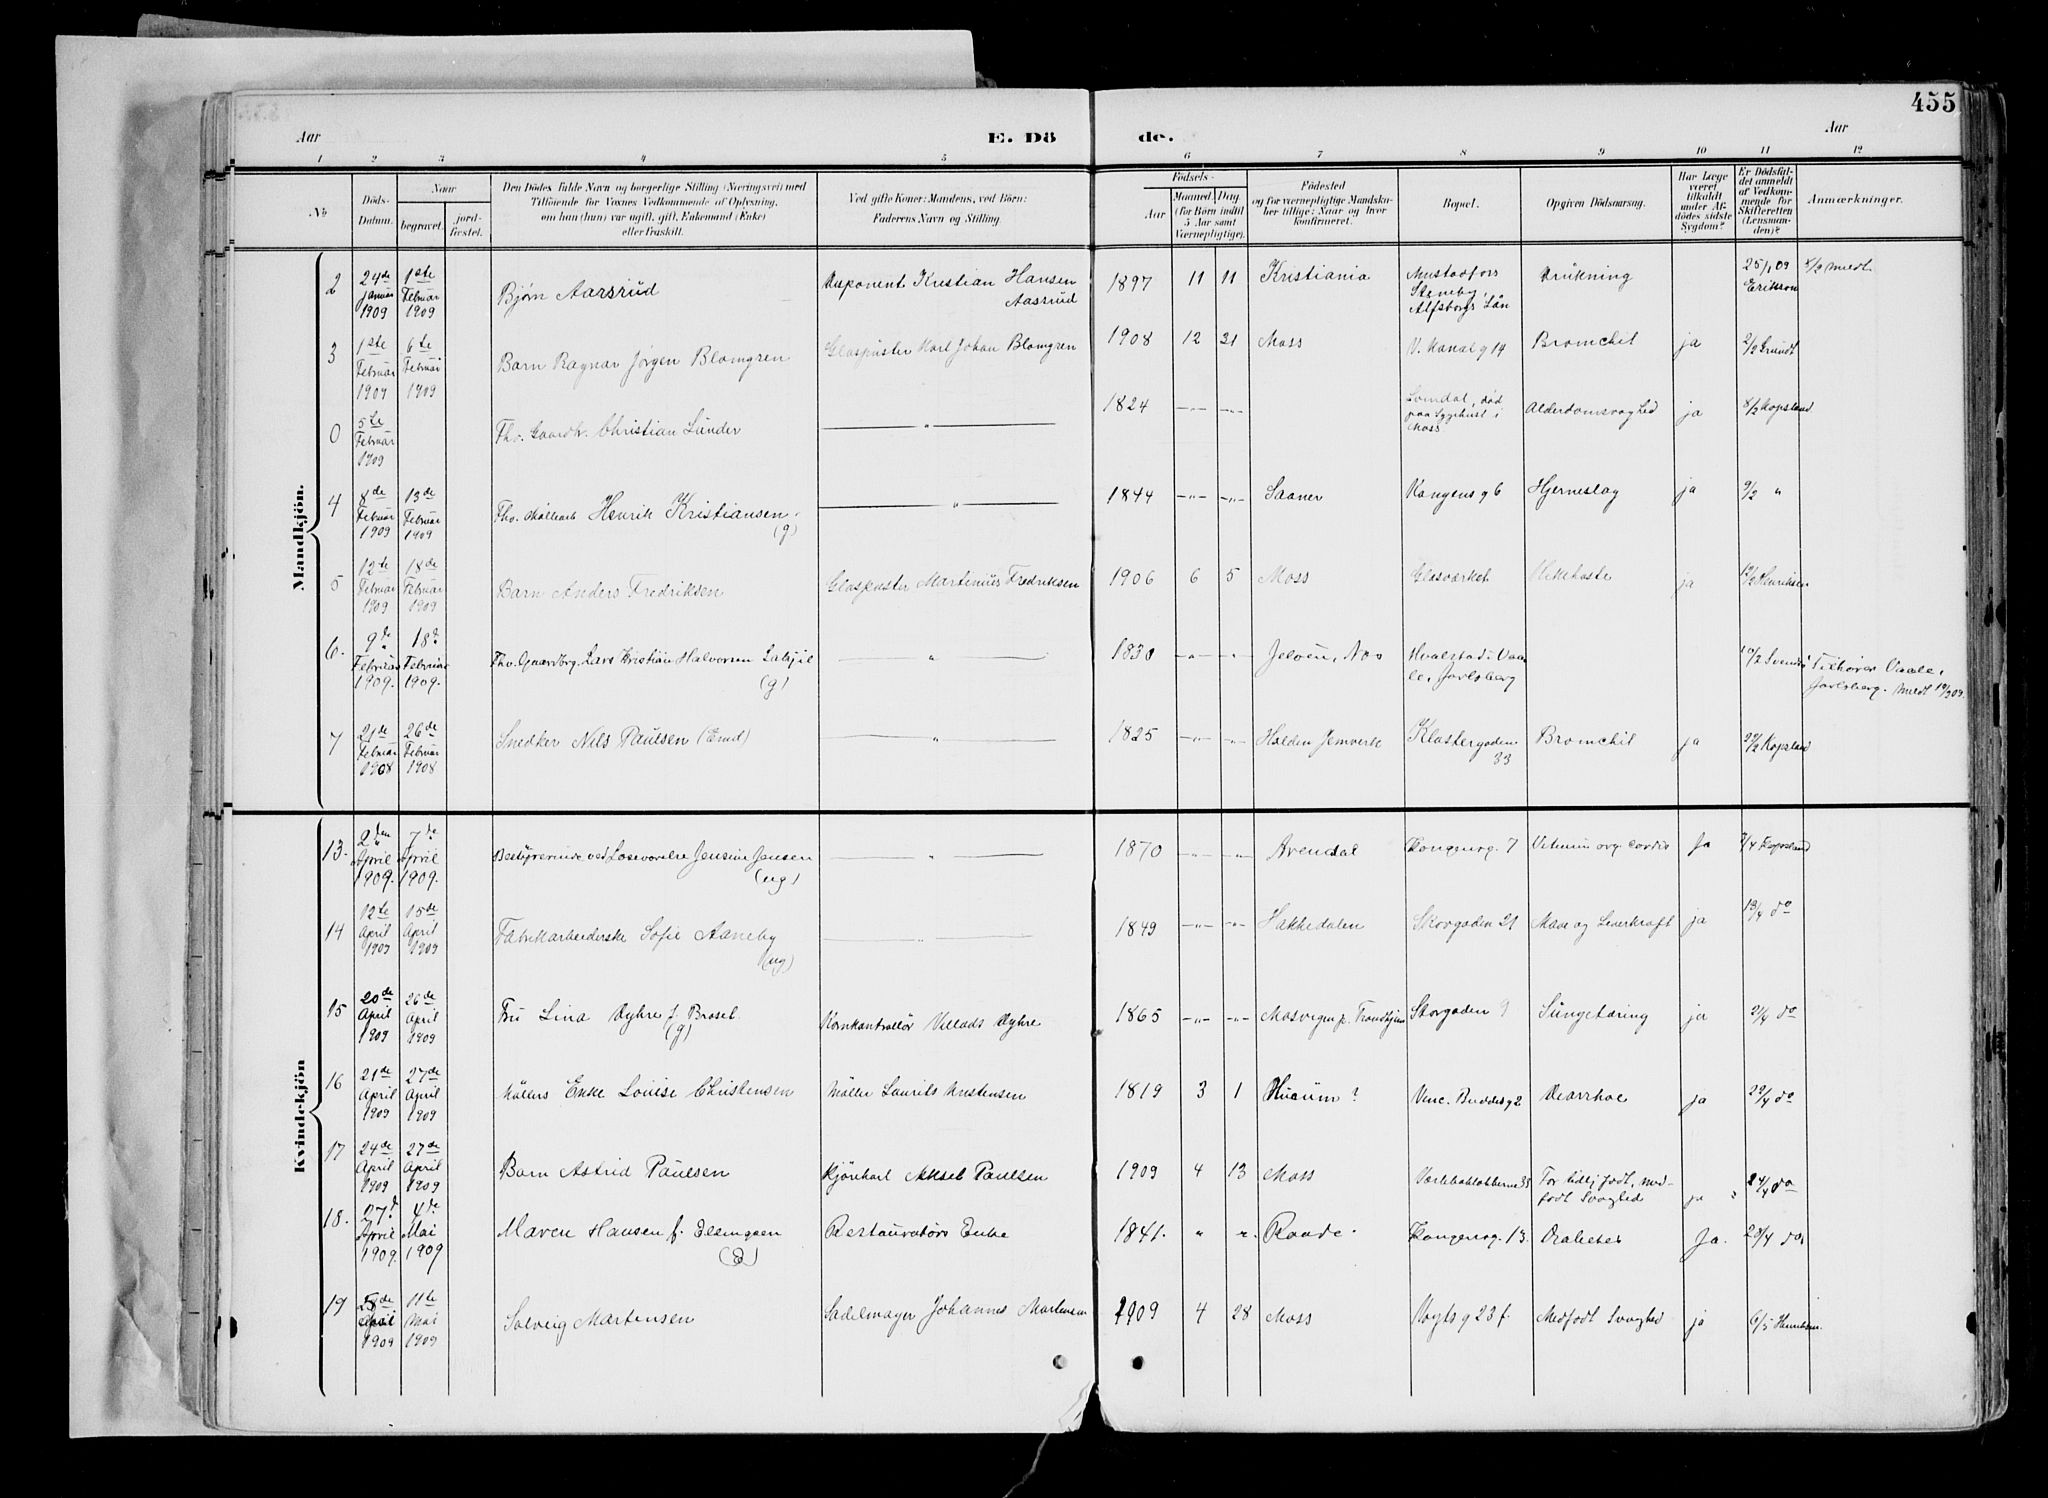 455
Aar E. Dö de. Aar
1 2 3 4 5 6 7 8 9 10 11 12
No
Döds-Datum.
Naar
begravet.
jord-fæstet.
Den Dödes fulde Navn og borgerlige Stilling (Næringsvei) med
Tilföiende for Voxnes Vedkommende af Oplysning,
om han (hun) var ugift, gift, Enkemand (Enke)
eller fraskilt.
Ved gifte Koner: Mandens, ved Börn:
Faderens Navn og Stilling.
Födsels-
Aar
Maaned. Dag.
(for Börn indtil
5 Aar samt
Værnepligtige).
Födested
og for værnepligtige Mandskaber tillige: Naar og hvor
konfirmeret.
Bopæl.
Opgiven Dödsaarsag.
Har Læge
været
tilkaldt
under Afdödes sidste
Sygdom?
Er Dödsfaldet anmeldt
af Vedkommende for
Skifteretten
(Lensmanden)?
Anmærkninger.
Mandkjön.
2 24de Januar 1909 1ste Februar 1909 Bjørn Aarsrud Disponent Kristian Hansen Aasrud 1897 11 11 Kristiania Mustadfors Steneby, Alfsborgs Län Drukning 25/1 09 Erikson
3 1ste Februar 1909 6te Februar 1909 Barn Ragnar Jørgen Blomgren Glaspuster Karl Johan Blomgren 1908 12 21 Moss V. Kanal g 14 Bronchit ja 2/2 Grundt
0 5te Februar 1909 Fhv. Gaardbr. Christian Lunder " 1824 -"- -"- død paa Sygehuset i Moss Alderdomssvaghed ja 8/2 Kopsland
4 8de Februar 1909 13de Februar 1909 Fhv. Henrik Kristiansen (g) " 1844 -"- -"- Saaner Kongens g 6 Hjerneslag ja 9/2 "
5 12te Februar 1909 18de Februar 1909 Barn Anders Fredriksen Glaspuster Martinius Fredriksen 1906 6 5 Moss Glasværket Kikhoste ja Henriksen
6. 9de Februar 1909. 18de Februar 1909. Fhv. Gaardbrg. Lars Kristian Halvorsen (g) " 1830 -"- " Jeløen, Moss i Vaale, Jarlsberg Vaale, Jarlsberg.
7 21de Februar 1908 26de Februar 1908 Snedker Nils Paulsen (Enkd) " 1825 -"- -"- Halden Jernverk Klostergaden 33 Bronchit ja Kopsland
Kvindekjön
13. 2den April 1909. 7de April 1909. Bestyrerinde ved Jensine Jensen (ug) " 1870 -"- -"- Arendal Kongensg. 7 Vitium org. cordis Ja 3/4 Kopsland
14 12te April 1909 15de April 1909 Fabrikarbeiderske Sofie Aaneby (ug) 1849 -"- -"- Hakkedalen Skovgaden 21 Mave og Leverkræft ja 13/4 do
15 20de April 1909 26de April 1909 Fru Lina Dyhre f. Brosel (g) Kornkontrollør Villads Dyhre 1865 -"- -"- Mosvigen p. Trondhjem Storgaden 9 Lungetæring ja 21/4 do
16 21de April 1909 27de April 1909 Møllers Enke Louise Christensen Møller Laurits Kristensen 1819 3 1 Husum ? Diarrhoe ja 22/4 do
17 24de April 1909 27de April 1909 Barn Astrid Paulsen Kjørekarl Aksel Paulsen 1909 4 13 Moss For tidlig født, medfødt Svaghed ja 24/4 do
18. 27d. April 1909. 4de Mai 1909 Maren Hansen f. Elingsen (E) Restauratørs Enke 1841. " " Raade. Kongensg. 13. Diabetes Ja. 28/4 do
19 28de April 1909 11te Mai 1909 Solveig Martensen Sadelmager Johannes Martensen 1909 4 28 Moss Vogts g 23 f. Medfødt Svaghed ja 6/5 Henriksen